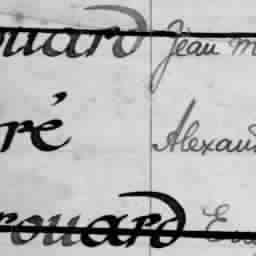 ouard Jean m
ré Alexand
rouard Eu